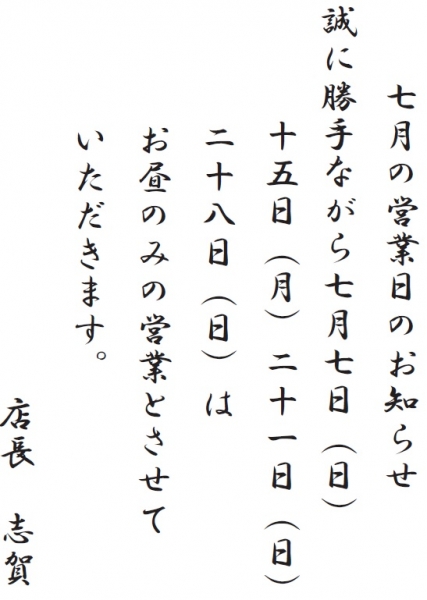 七月の営業日のお知らせ
誠に勝手ながら七月七日（日）
十五日（月）二十一日（日）
二十八日（日）は
お昼のみの営業とさせて
いただきます。
店長　志賀